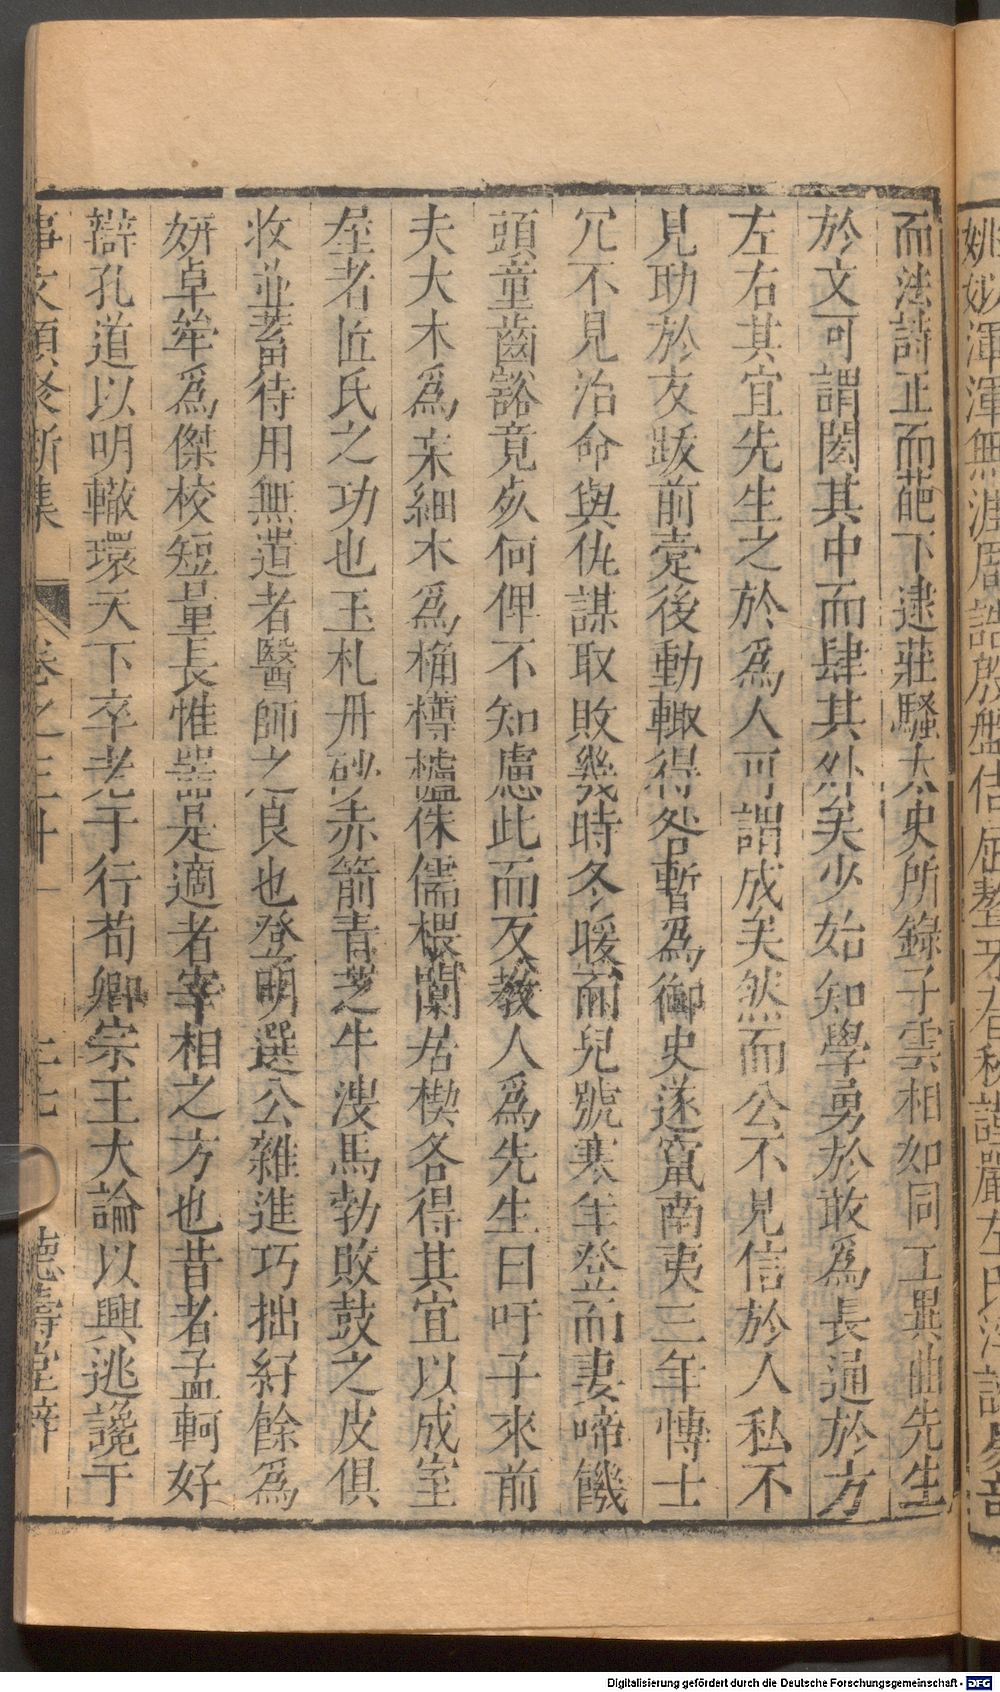 姚姒渾渾無涯周誥殷盤佶屈聱牙春秋謹嚴左氏浮誇易奇
而法詩正而葩下逮莊騷太史所錄子雲相如同工異曲先生
於文可謂閎其中而肆其外矣少始知學勇於敢爲長通於方
左右其宜先生之於爲人可謂成矣然而公不見信於人私不
見助於友跋前疐後動輙得咎暫爲御史遂竄南夷三年博士
冗不見治命與仇謀取敗幾時冬暖而兒號寒年登而妻啼饑
頭童齒豁竟死何俾不知慮此而反教人爲先生曰吁子來前
夫大木爲杗細木爲桷欂櫨侏儒椳闑扂楔各得其宜以成室
屋者匠氏之功也玉札丹砂赤箭青芝牛溲馬勃敗鼓之皮俱
收並蓄待用無遺者醫師之良也登明選公雜進巧拙紆餘爲
妍卓犖爲傑校短量長惟噐是適者宰相之方也昔者孟軻好
辯孔道以明轍環天下卒老于行荀卿宗王大論以興逃讒于
事文類聚新集 卷之三十 三七 德壽堂梓
Digitalisierung gefördert durch die Deutsche Forschungsgemeinschaft - DFG